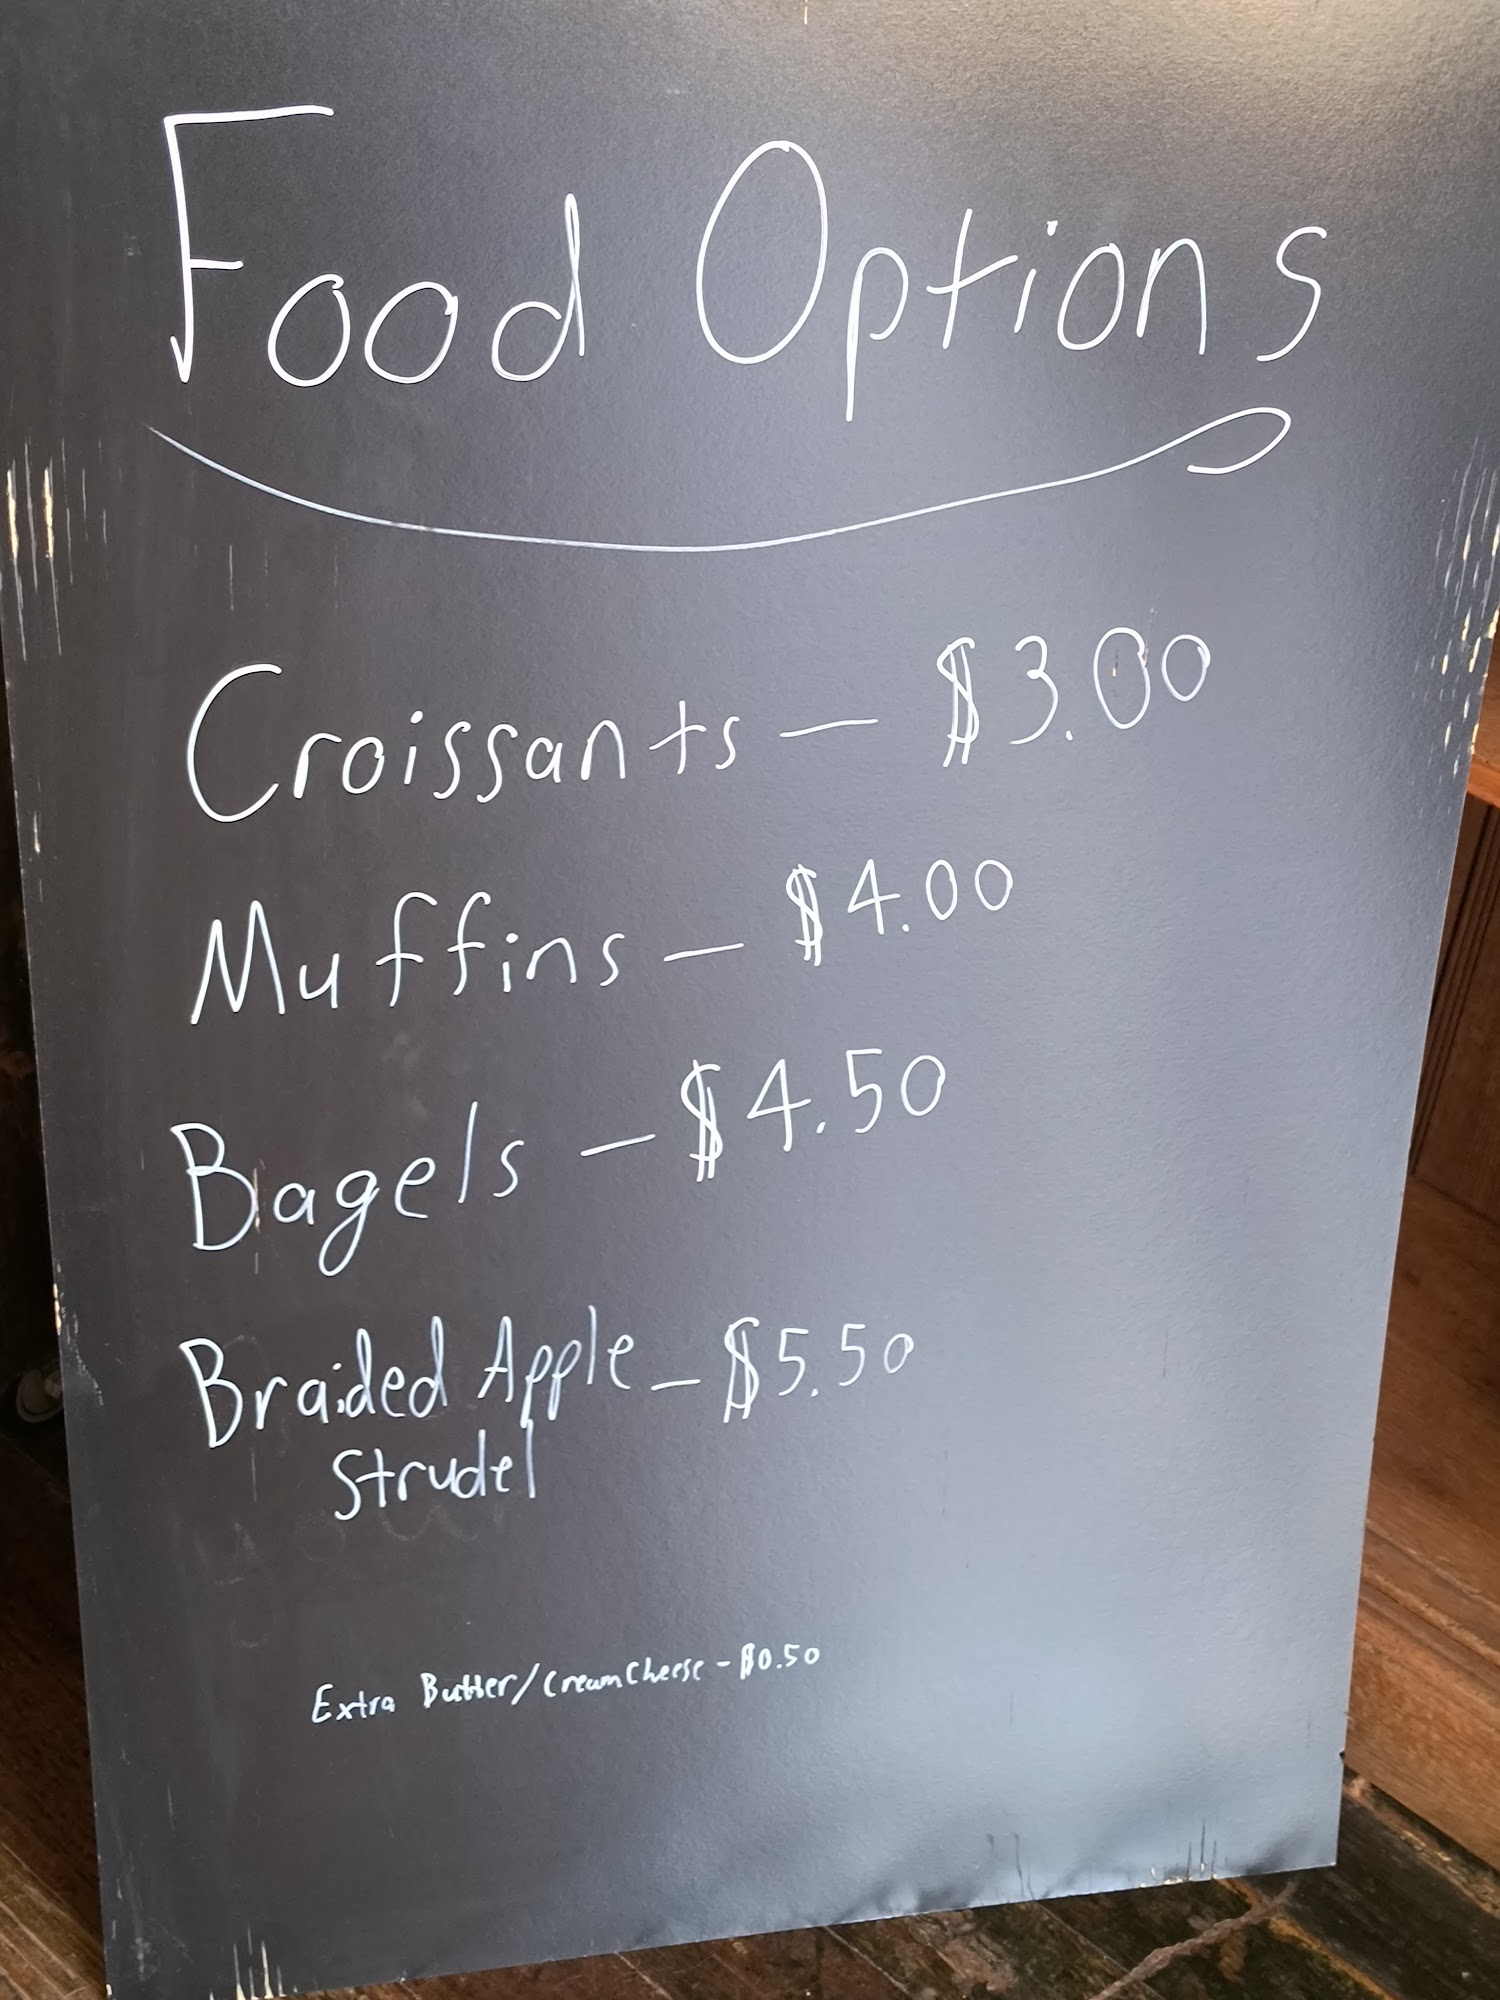 Food Options
Croissants - $3.00
Muffins - $4.00
Bagels - $4.50
Braided Apple - $5.50
Strudel
Extra Butter/Cream Cheese - $0.50